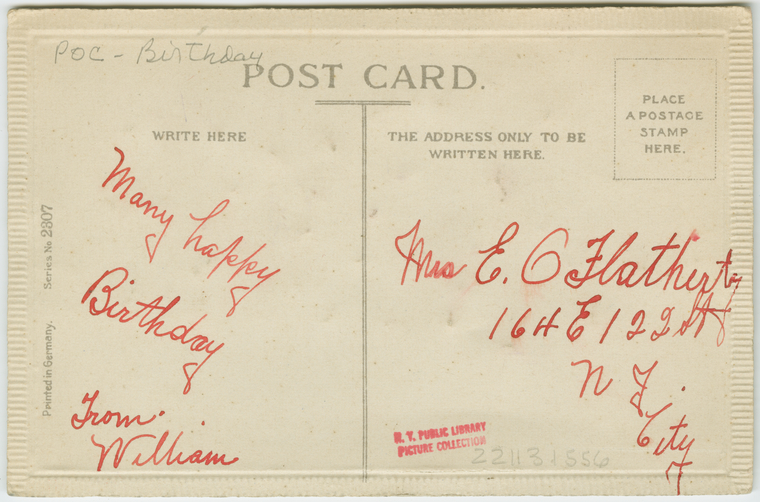 POC - Birthday
POST CARD.
WRITE HERE
THE ADDRESS ONLY TO BE
WRITTEN HERE.
PLACE
A POSTAGE
STAMP
HERE.
Many happy
Birthday
From.
William
Mrs E. O Flatherty
164 E 122 St
N Y.
City
Printed in Germany. Series No 2307
N. Y. PUBLIC LIBRARY
PICTURE COLLECTION